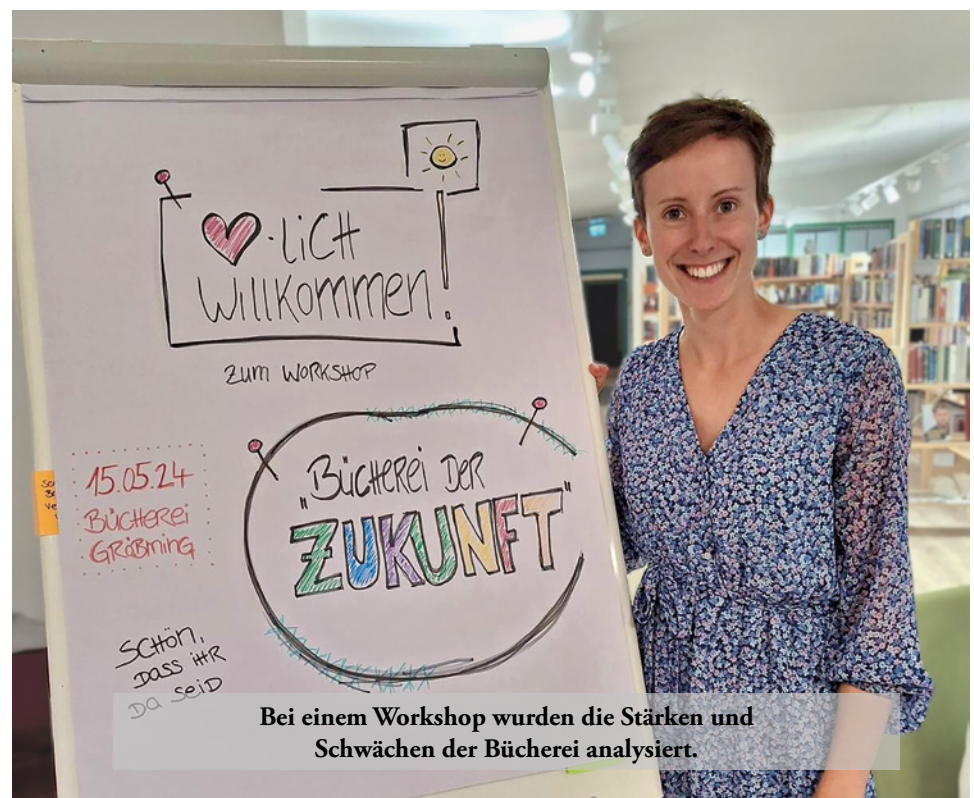 ♥-LiCH
WiLLKommen!
zum WORKSHOP
15.05.24
BÜCHEREi
GRÖBMinG
"BÜCHEREi DER
ZUKUNFT"
SCHÖN,
DASS iHR
DA SeiD
Bei einem Workshop wurden die Stärken und
Schwächen der Bücherei analysiert.